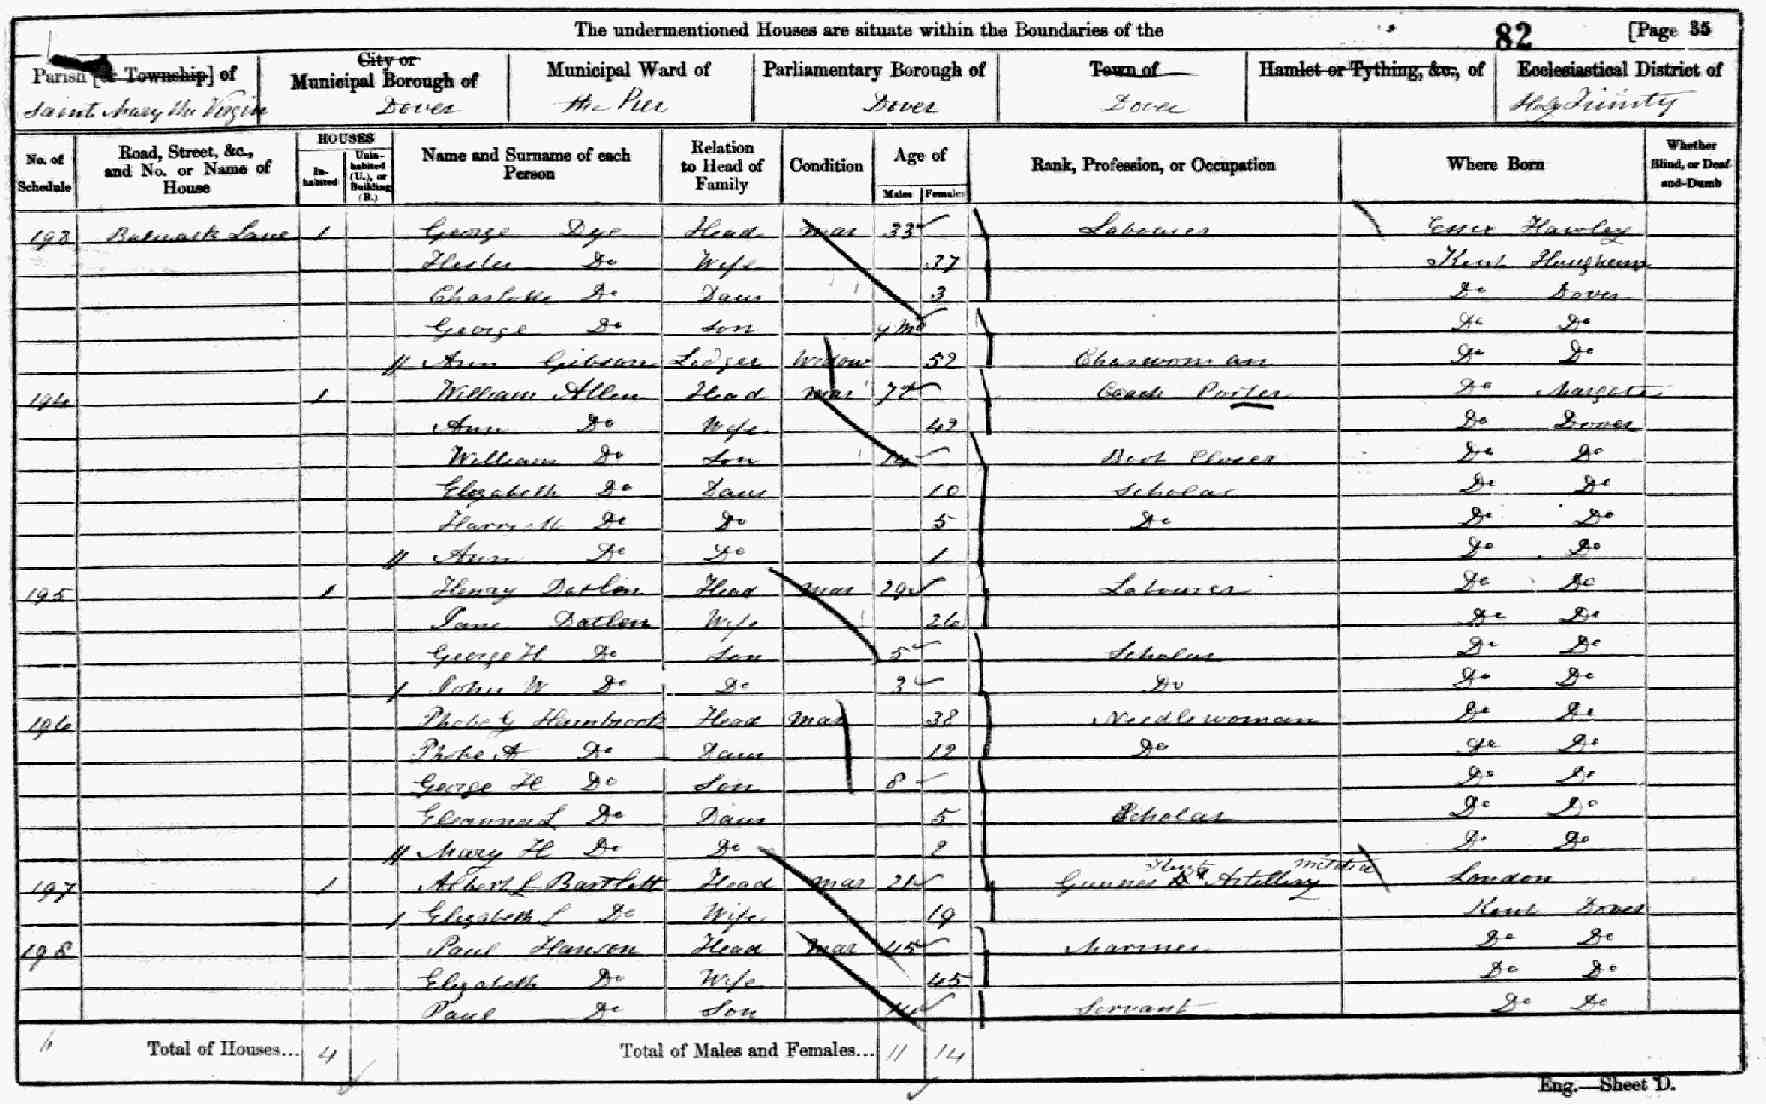 The undermentioned Houses are situate within the Boundaries of the 82 [Page 35
Parish [or Township] of City or Municipal Borough of Municipal Ward of Parliamentary Borough of Town of Hamlet or Tything, &c., of Ecclesiastical District of
Saint Mary the Virgin Dover the Pier Dover Dover Holy Trinity
No. of Schedule Road, Street, &c., and No. or Name of House HOUSES In-habited Unin-habited (U.), or Building (B.) Name and Surname of each Person Relation to Head of Family Condition Age of Males Females Rank, Profession, or Occupation Where Born Whether Blind, or Deaf-and-Dumb
193 Bulwark Lane 1 George Dye Head Mar 33 Labourer Essex Hawley
Hester Do Wife 37 Kent Hougham
Charlotte Do Daur 3 Do Dover
George Do Son Do Do
Ann Gibson Lodger Widow 52 Charwoman Do Do
194 1 William Allen Head Mar 72 Coach Porter Do Margate
Ann Do Wife 42 Do Dover
William Do Son 14 Boot Closer Do Do
Elizabeth Do Daur 10 Scholar Do Do
Harriett Do Do 5 Do Do Do
Ann Do Do 1 Do Do
195 1 Henry Datlen Head Mar 29 Labourer Do Do
Jane Datlen Wife 26 Do Do
George H Do Son 5 Scholar Do Do
John W Do Do 3 Do Do Do
196 Phebe G Hambrook Head Mar 38 Needlewoman Do Do
Phebe A Do Daur 12 Do Do Do
George H Do Son 8 Do Do
Eleanna L Do Daur 5 Scholar Do Do
Mary H Do Do 2 Do Do
197 1 Albert L Bartlett Head Mar 21 Gunner Kent Artillery Militia London
Elizabeth L Do Wife 19 Kent Dover
198 Paul Hanson Head Mar 45 Mariner Do Do
Elizabeth Do Wife 45 Do Do
Paul Do Son Servant Do Do
6 Total of Houses... 4 Total of Males and Females... 11 14
Eng.—Sheet D.